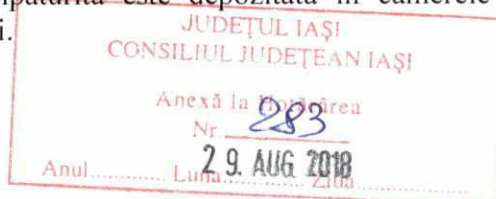 este depozitată în camerele
i.
JUDEȚUL IAȘI
CONSILIUL JUDEȚEAN IAȘI
Anexă la Hotărârea
Nr. 283
29. AUG. 2018
Anul............ Luna............ Ziua............